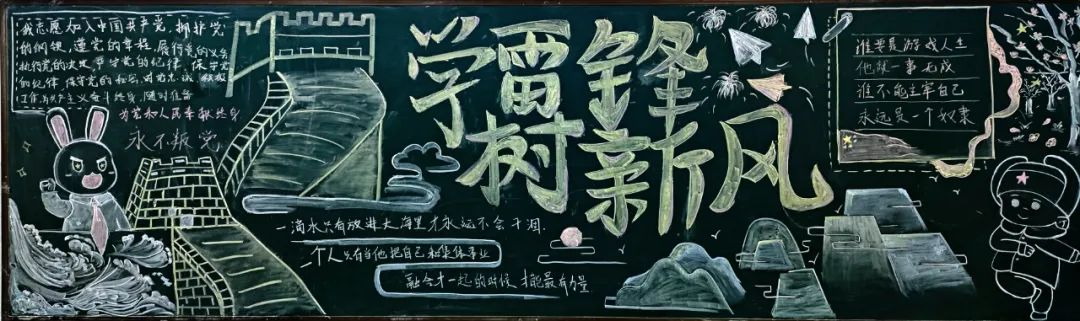 我志愿加入中国共产党,拥护党
的纲领,遵党的章程,履行党的义务
执行党的决定,严守党的纪律,保守党
的秘密,对党忠诚,积极
工作,为共产主义奋斗终身,随时准备
为党和人民牺牲
永不叛党
学雷锋
树新风
一滴水只有放进大海里才永远不会干涸
一个人只有当他把自己和集体事业
融合才一起的时候才能最有力量
谁要是游戏人生
他就一事无成
谁不能主宰自己
永远是一个奴隶